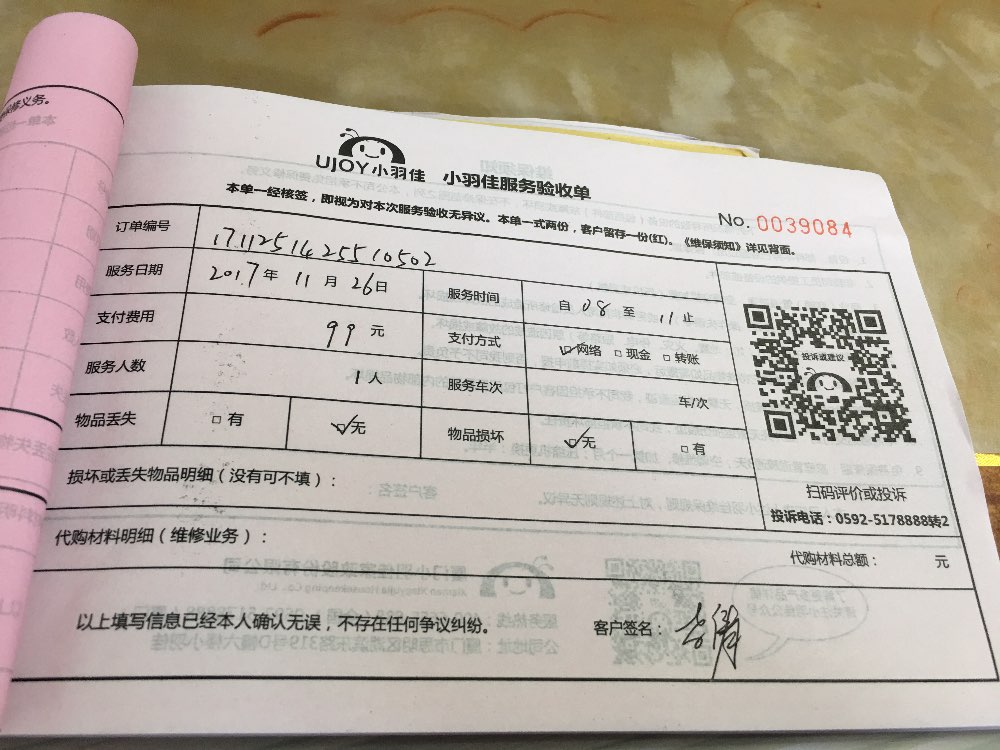 修义务。
UJOY小羽佳 小羽佳服务验收单
No. 0039084
本单一经核签，即视为对本次服务验收无异议。本单一式两份，客户留存一份(红)。《维保须知》详见背面。
订单编号 17112514255 10502
服务日期 2017年 11月 26日 服务时间 自 08 至 11 止
支付费用 99 元 支付方式 ☑网络 □现金 □转账
服务人数 1人 服务车次 车/次
物品丢失 □有 ☑无 物品损坏 ☑无 □有
投诉或建议
扫码评价或投诉
投诉电话：0592-5178888转2
损坏或丢失物品明细（没有可不填）：
代购材料明细（维修业务）：
代购材料总额： 元
以上填写信息已经本人确认无误，不存在任何争议纠纷。 客户签名：